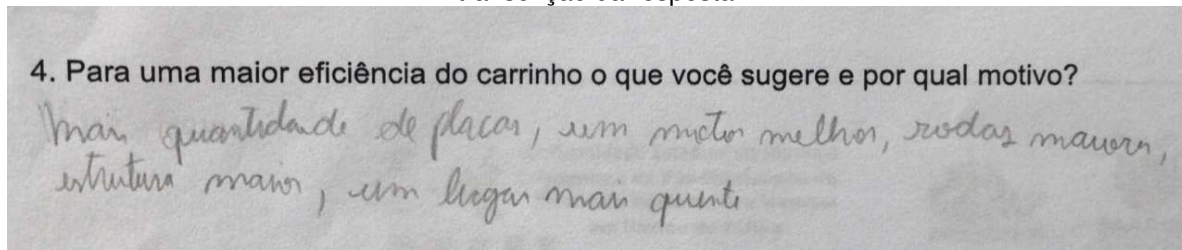 4. Para uma maior eficiência do carrinho o que você sugere e por qual motivo?
Mais quantidade de placas, um motor melhor, rodas maiores,
estrutura maior, um lugar mais quente